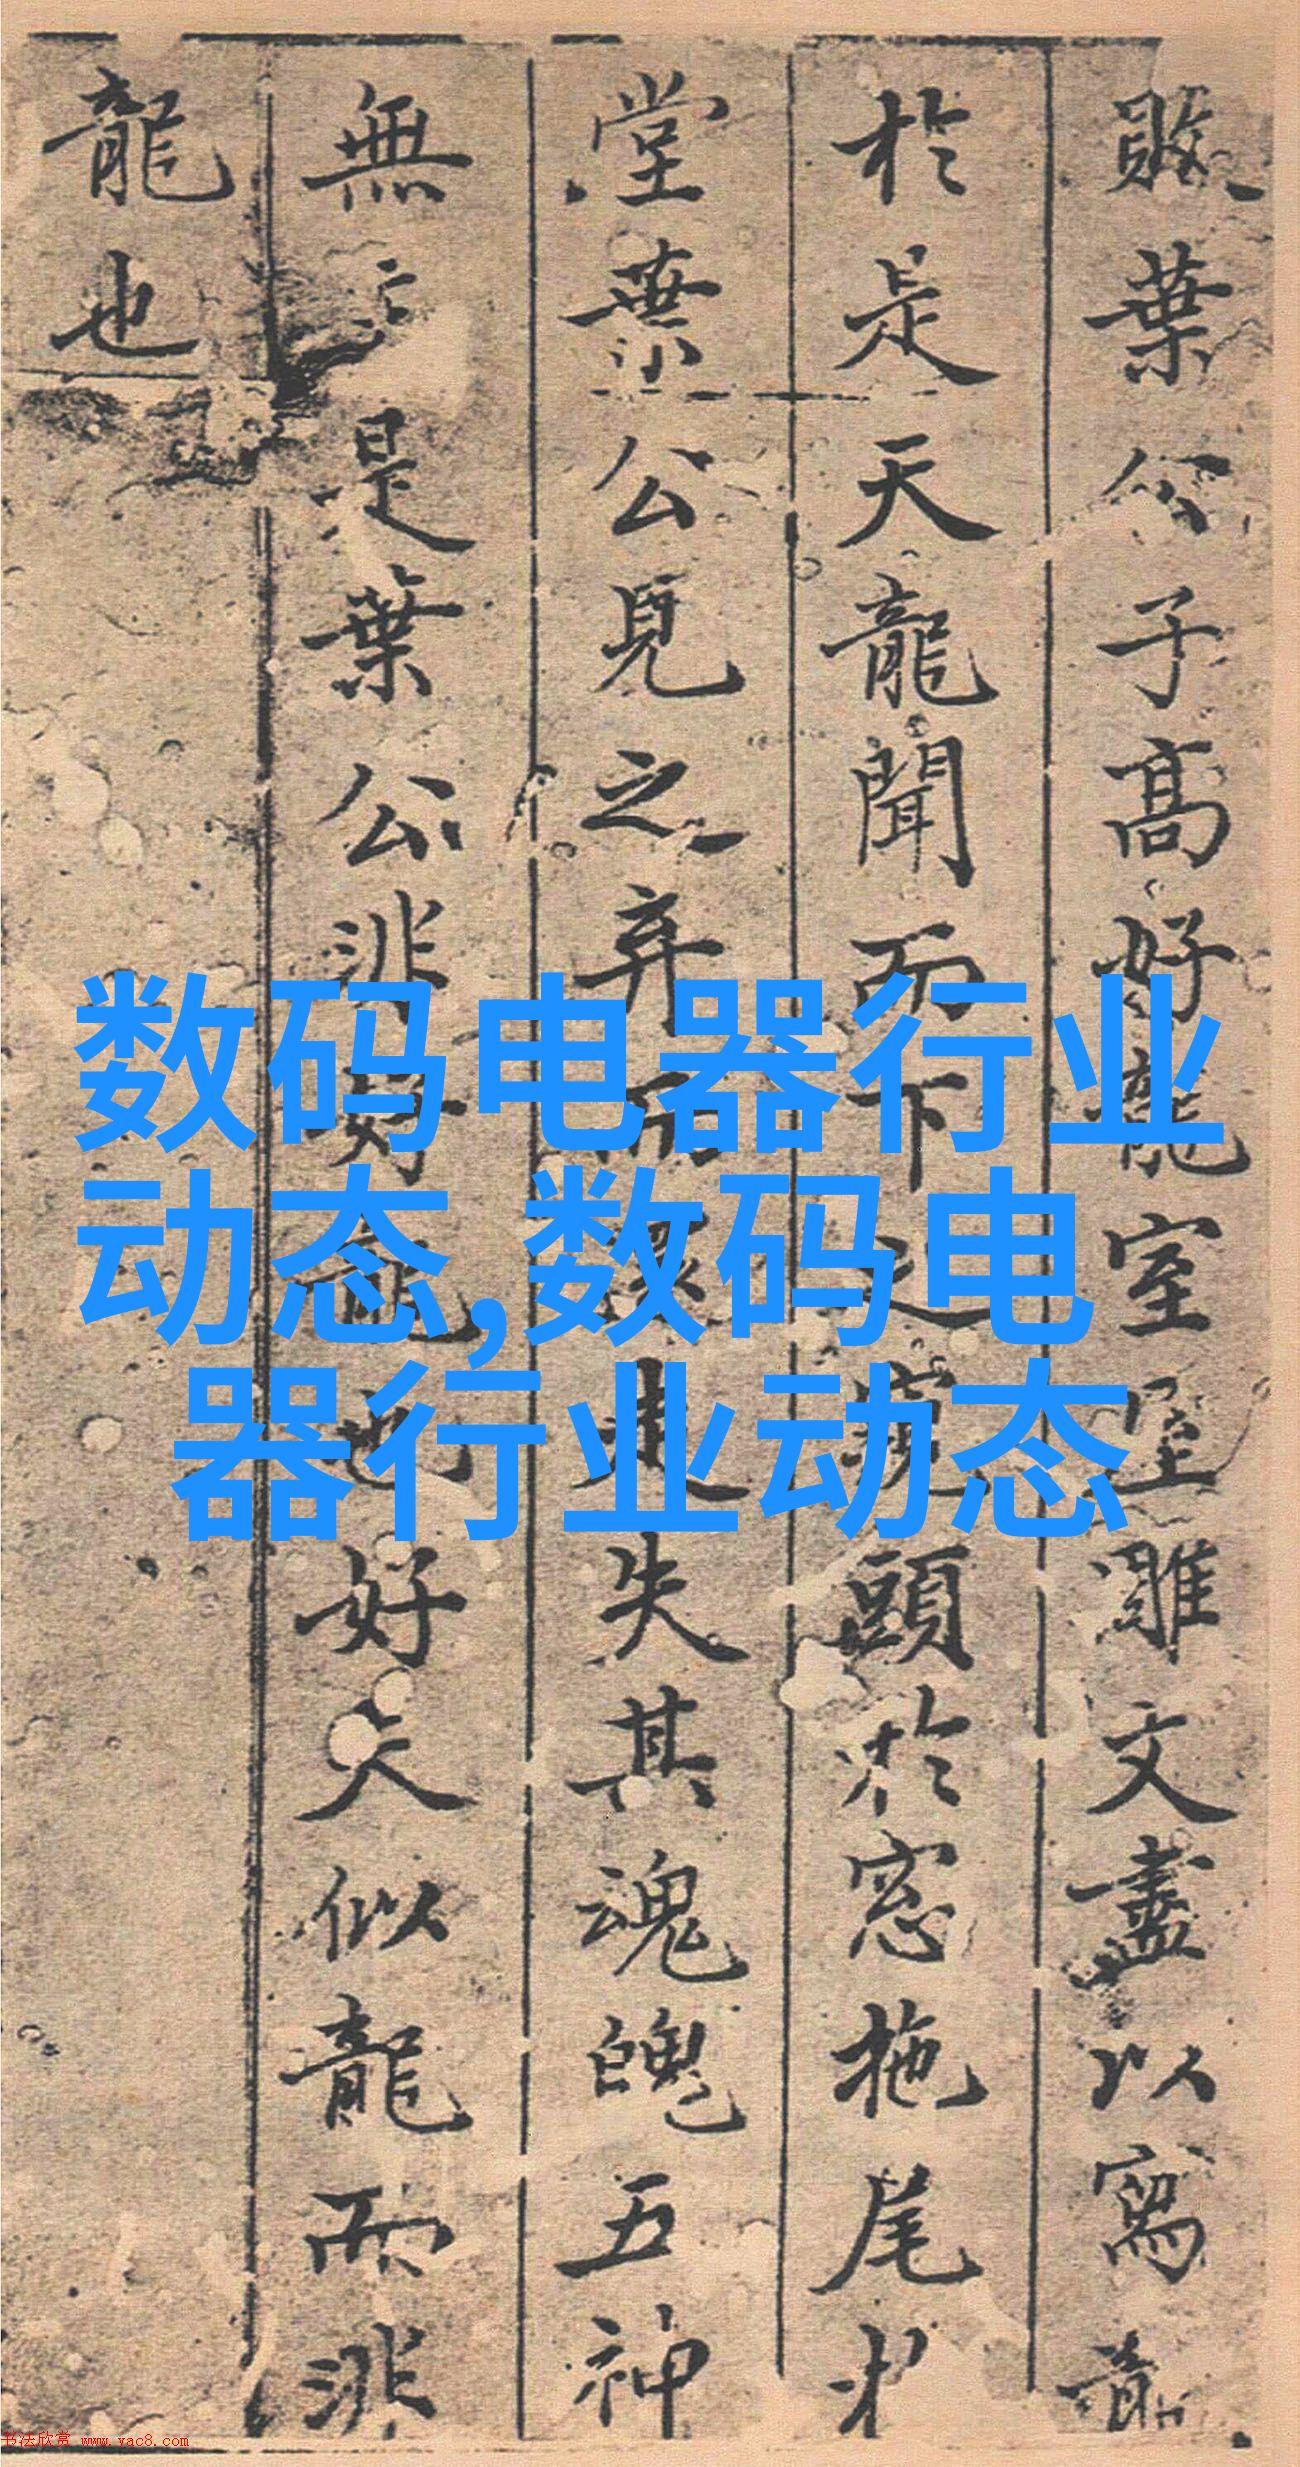 敗葉公子髙好龍室屋雕文盡以寫龍
於是天龍聞而下之窺頭於窓拖尾於
堂葉公見之弃而還走失其魂魄五神
無主是葉公非好龍也好夫似龍而非
龍也
数码电器行业
动态,数码电
器行业动态
书法欣赏 www.yac8.com